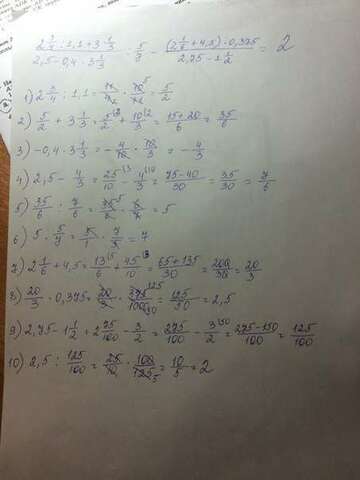 (2 3/4 : 1,1 + 3 1/3) / (2,5 - 0,4 · 3 1/3) : 5/7 - ((2 1/6 + 4,5) · 0,375) / (2,75 - 1 1/2) = 2
1) 2 3/4 : 1,1 = 11/4 · 10/11 = 5/2
2) 5/2 + 3 1/3 = 5/2 + 10/3 = (15+20)/6 = 35/6
3) -0,4 · 3 1/3 = -4/10 · 10/3 = -4/3
4) 2,5 - 4/3 = 25/10 - 4/3 = (75-40)/30 = 35/30 = 7/6
5) 35/6 : 7/6 = 35/6 · 6/7 = 5
6) 5 : 5/7 = 5/1 · 7/5 = 7
7) 2 1/6 + 4,5 = 13/6 + 45/10 = (65+135)/30 = 200/30 = 20/3
8) 20/3 · 0,375 = 20/3 · 375/1000 = 125/50 = 2,5
9) 2,75 - 1 1/2 = 2 75/100 - 3/2 = 275/100 - 3/2 = (275-150)/100 = 125/100
10) 2,5 : 125/100 = 25/10 · 100/125 = 10/5 = 2